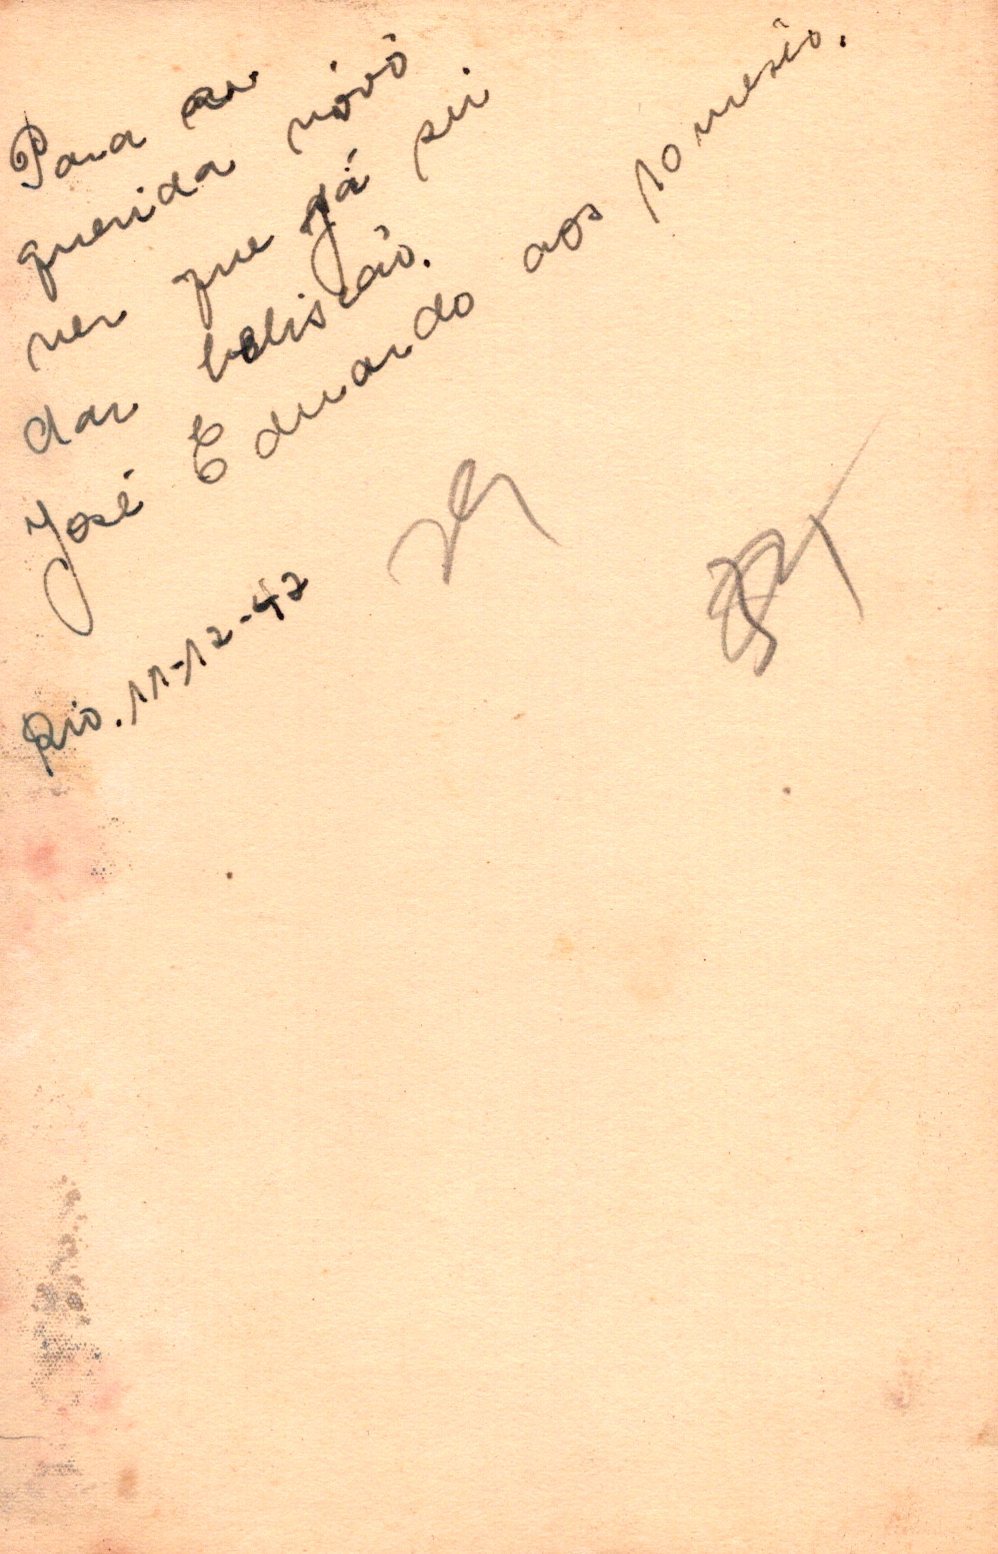 Para a
querida vóvó
ver que já sei
dar beliscão.
José Eduardo aos 10 mesês.
Rio. 11-12-47